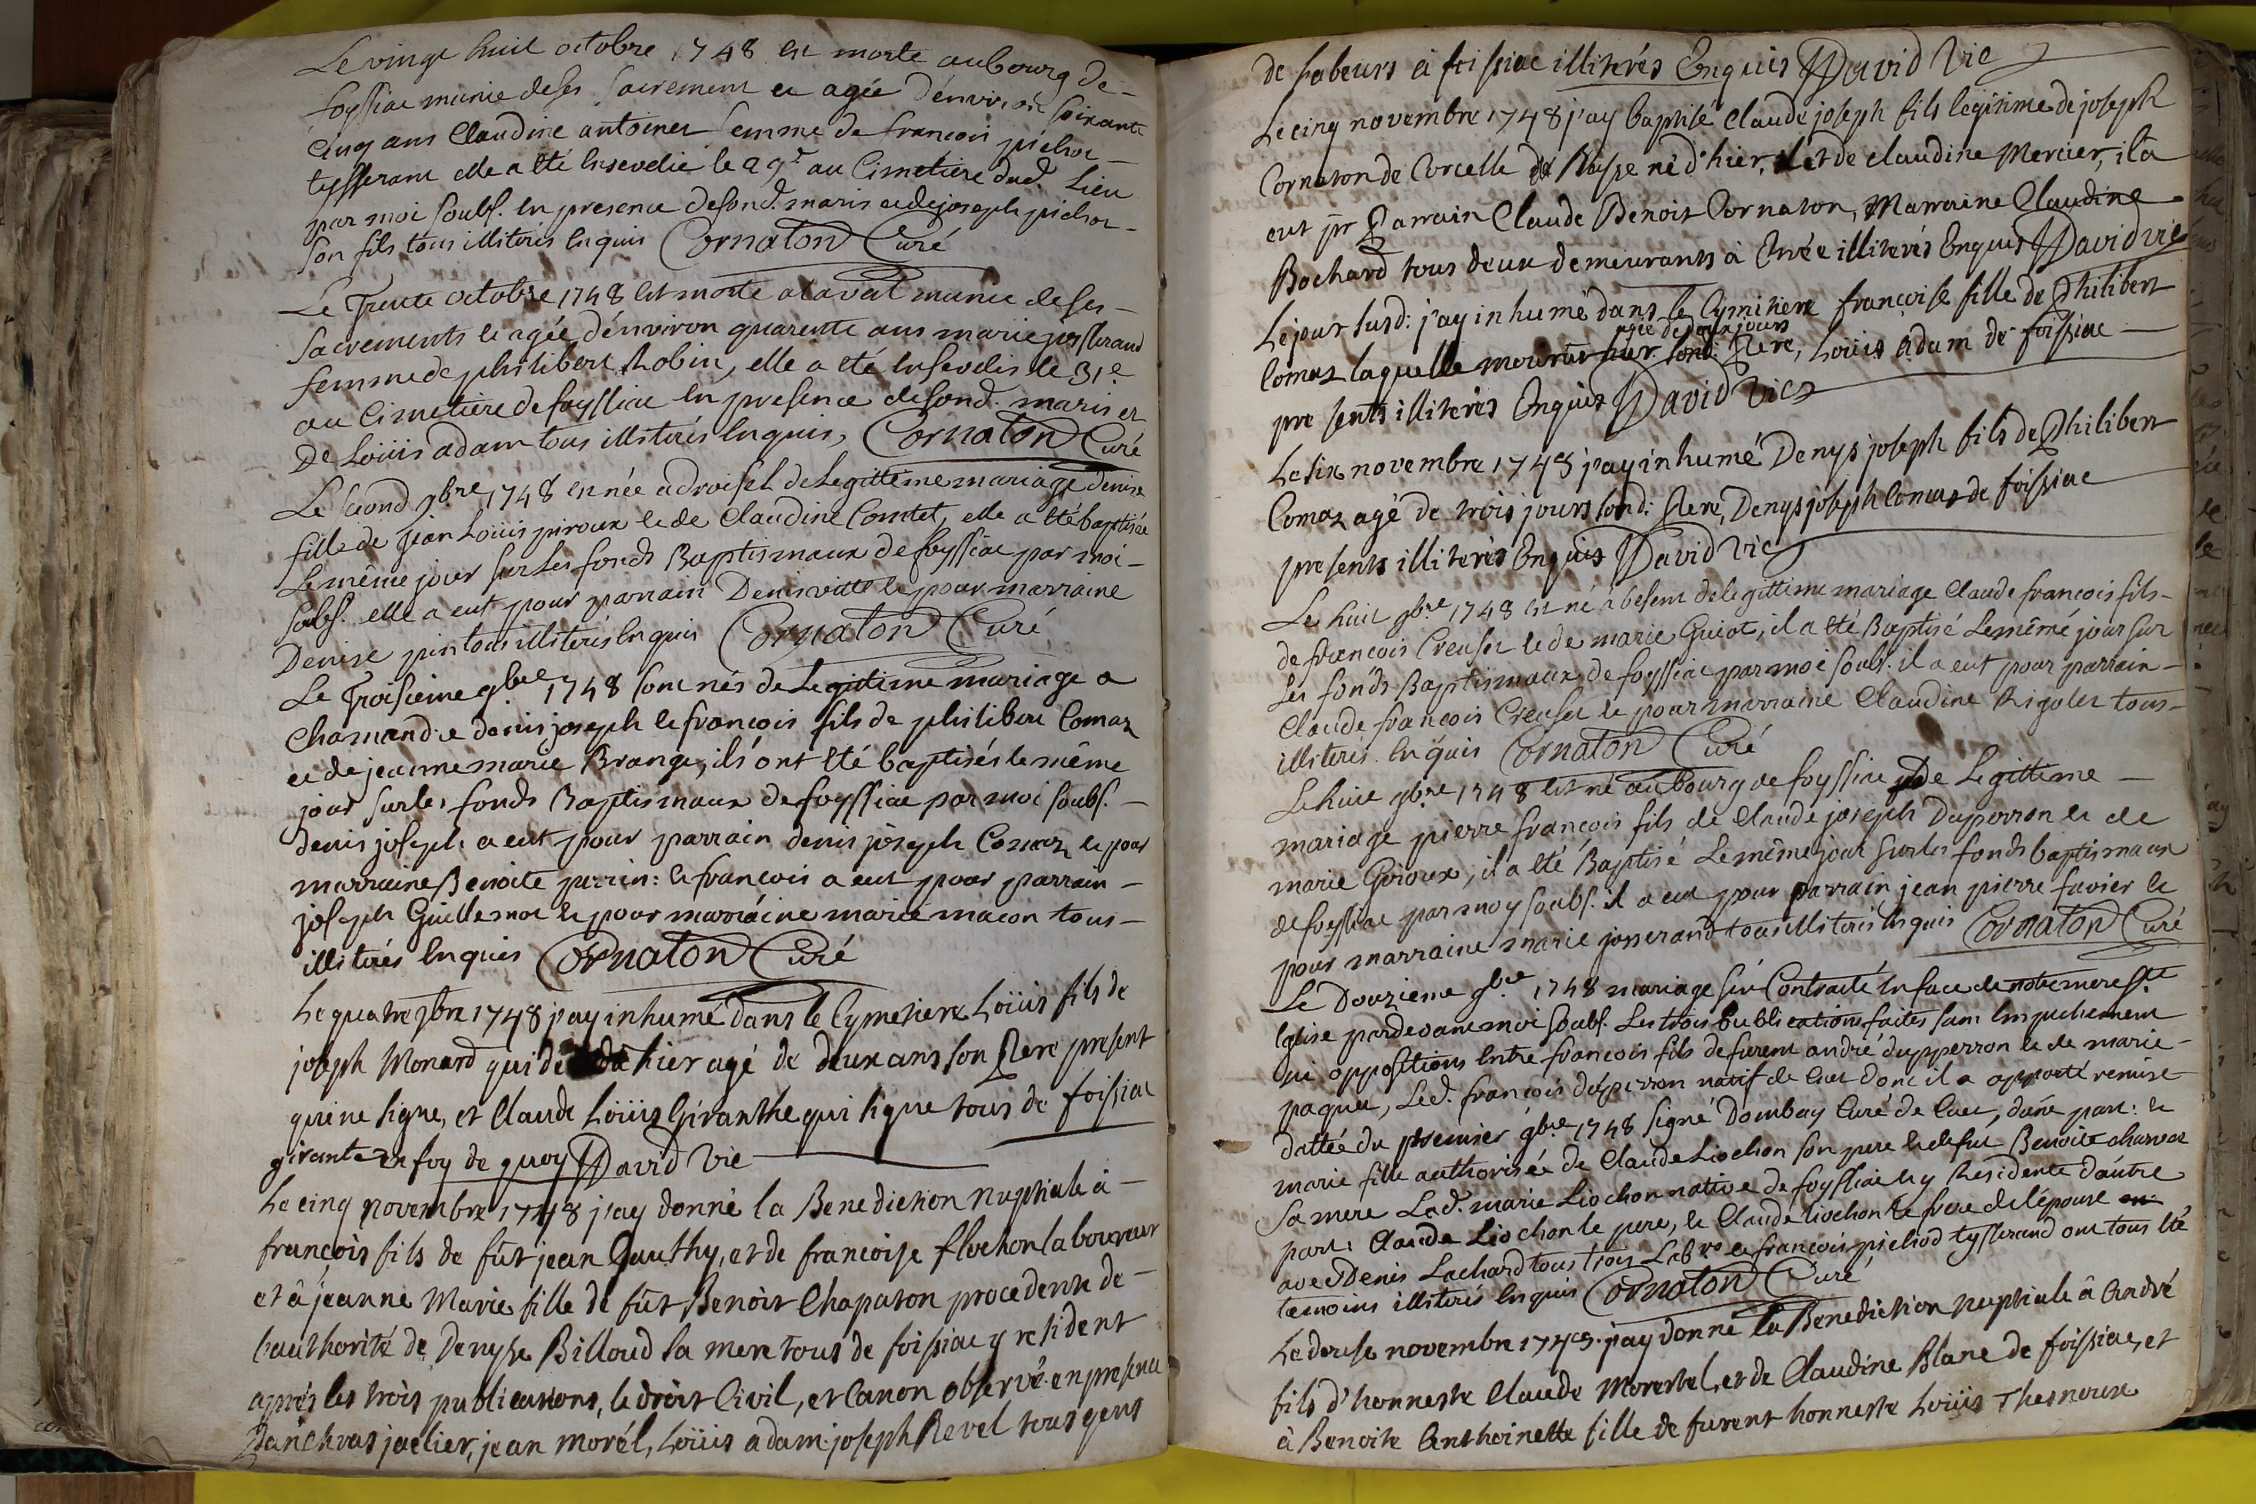 Le vingt huit octobre 1748 est morte au bourg de
foyssiac munie de ses sacrement et agée d'environ soixante
cinq ans Claudine antoinet femme de francois pichot
tysserant elle a été ensevelie le 29e au Cimetiere dud. Lieu
par moi soubs. en presence de sond. maris et de joseph pichot
son fils tous illiterés enquis Cornaton Curé
Le Trente octobre 1748 est morte a laval munie de ses
sacrements et agée d'environ quarente ans marie josserand
femme de philibert Robin, elle a été ensevelie le 31e
au Cimetiere de foyssiac en presence de sond. maris et
De Loüis adam tous illiterés enquis, Cornaton Curé
Le second 9bre 1748 est née a droisel de legittime mariage denise
fille de jean Loüis piroux et de Claudine Comtet, elle a été baptisée
Le même jour sur les fonds Baptismaux de foyssiac par moi
soubs. elle a eut pour parrain Denis vitte et pour marraine
Denise pin tous illiterés enquis Cornaton Curé
Le Troisieme 9bre 1748 sont nés de Legittime mariage a
Chamandie denis joseph et francois fils de philibert Comaz
et de jeanne marie Brange, ils ont été baptisés le même
jour sur les fonds Baptismaux de foyssiac par moi soubs.
denis joseph a eut pour parrain denis joseph Comaz et pour
marraine Benoite perrin: et francois a eut pour parrain
joseph Guillemot et pour marraine marie macon tous
illiterés enquis Cornaton Curé
Le quatre 9bre 1748 j'ay inhumé dans le Cymetiere Loüis fils de
joseph Monard qui hier agé de deux ans son Pere present
qui ne signe, et Claude Loüis Giranthe qui signe tous de foissiac
girante en foy de quoy David Vic
Le cinq novembre 1748 j'ay donné la Benediction Nuptiale à
françois fils de fût jean Gauthy, et de françoise flochon laboureur
et à jeanne Marie fille de fût Benoit Chapaton procedente de
l'authorité de Denyse Billoud sa mere tous de foissiac y resident
après les trois publications, le droit Civil, et Canon observé en presence
d'anthoine jaelier, jean morél, Loüis adam joseph Revel tous gens
de Labeurs à foissiac illiterés Enquis David Vic
Le cinq novembre 1748 j'ay baptisé Claude joseph fils legitime de joseph
Cornaton de Corcelle né d'hier, et de claudine Mercier, il a
eut pr Parrain Claude Benoit Cornaton, Marraine Claudine
Bochard tous deux demeurants à Cuée illiterés Enquis David vic
Le jour susd: j'ay inhumé dans le Cymitiere françoise fille de Philibert
agée de deux jours
Comaz laquelle mourut hier. sond: Pere, Loüis Adam de foissiac
presents illiterés Enquis David Vic
Le six novembre 1748 j'ay inhumé Denys joseph fils de Philibert
Comaz agé de trois jours sond: Pere, Denys joseph Comaz de foissiac
presents illiterés Enquis David Vic
Le huit 9bre 1748 est né à besent de legittime mariage Claude francois fils
de francois Creuset et de marie Guiot, il a été Baptisé Le même jour sur
Les fonds Baptismaux de foyssiac par moi soubs. il a eut pour parrain
Claude francois Creuset et pour marraine Claudine Rigolet tous
illiterés enquis Cornaton Curé
Le huit 9bre 1748 est né au bourg de foyssiac de Legittime
mariage pierre francois fils de Claude joseph Duperron et de
marie Giroux, il a été Baptisé Le même jour sur les fonds baptismaux
de foyssiac par moy soubs. il a eut pour parrain jean pierre favier et
pour marraine marie josserand tous illiterés enquis Cornaton Curé
Le Douzieme 9bre 1748 mariage fût Contracté en face de notre mere ste
Eglise pardevant moi soubs. Les trois publications faites sans empechement
ni oppositions Entre francois fils de furent andré dupperron et de marie
paquet, Led. francois duperron natif de Cuet dont il a apporté remise
dattée du premier 9bre 1748 signé Dombey Curé de Cuet, d'une part: et
marie fille authorisée de Claude Liochon son pere et de fut Benoite charvet
sa mere Lad. marie Liochon native de foyssiac et y Residente d'autre
part: Claude Liochon le pere, et Claude Liochon le frere de l'épouse
avec Denis Lachard tous trois Labro et francois pichod tysserand ont tous été
temoins illiterés enquis Cornaton Curé
Le douse novembre 1748. j'ay donné la Benediction Nuptiale à André
fils d'honneste Claude Morestel, et de Claudine Blanc de foissiac, et
à Benoite Anthoinette fille de furent honneste Loüis Thesnoux